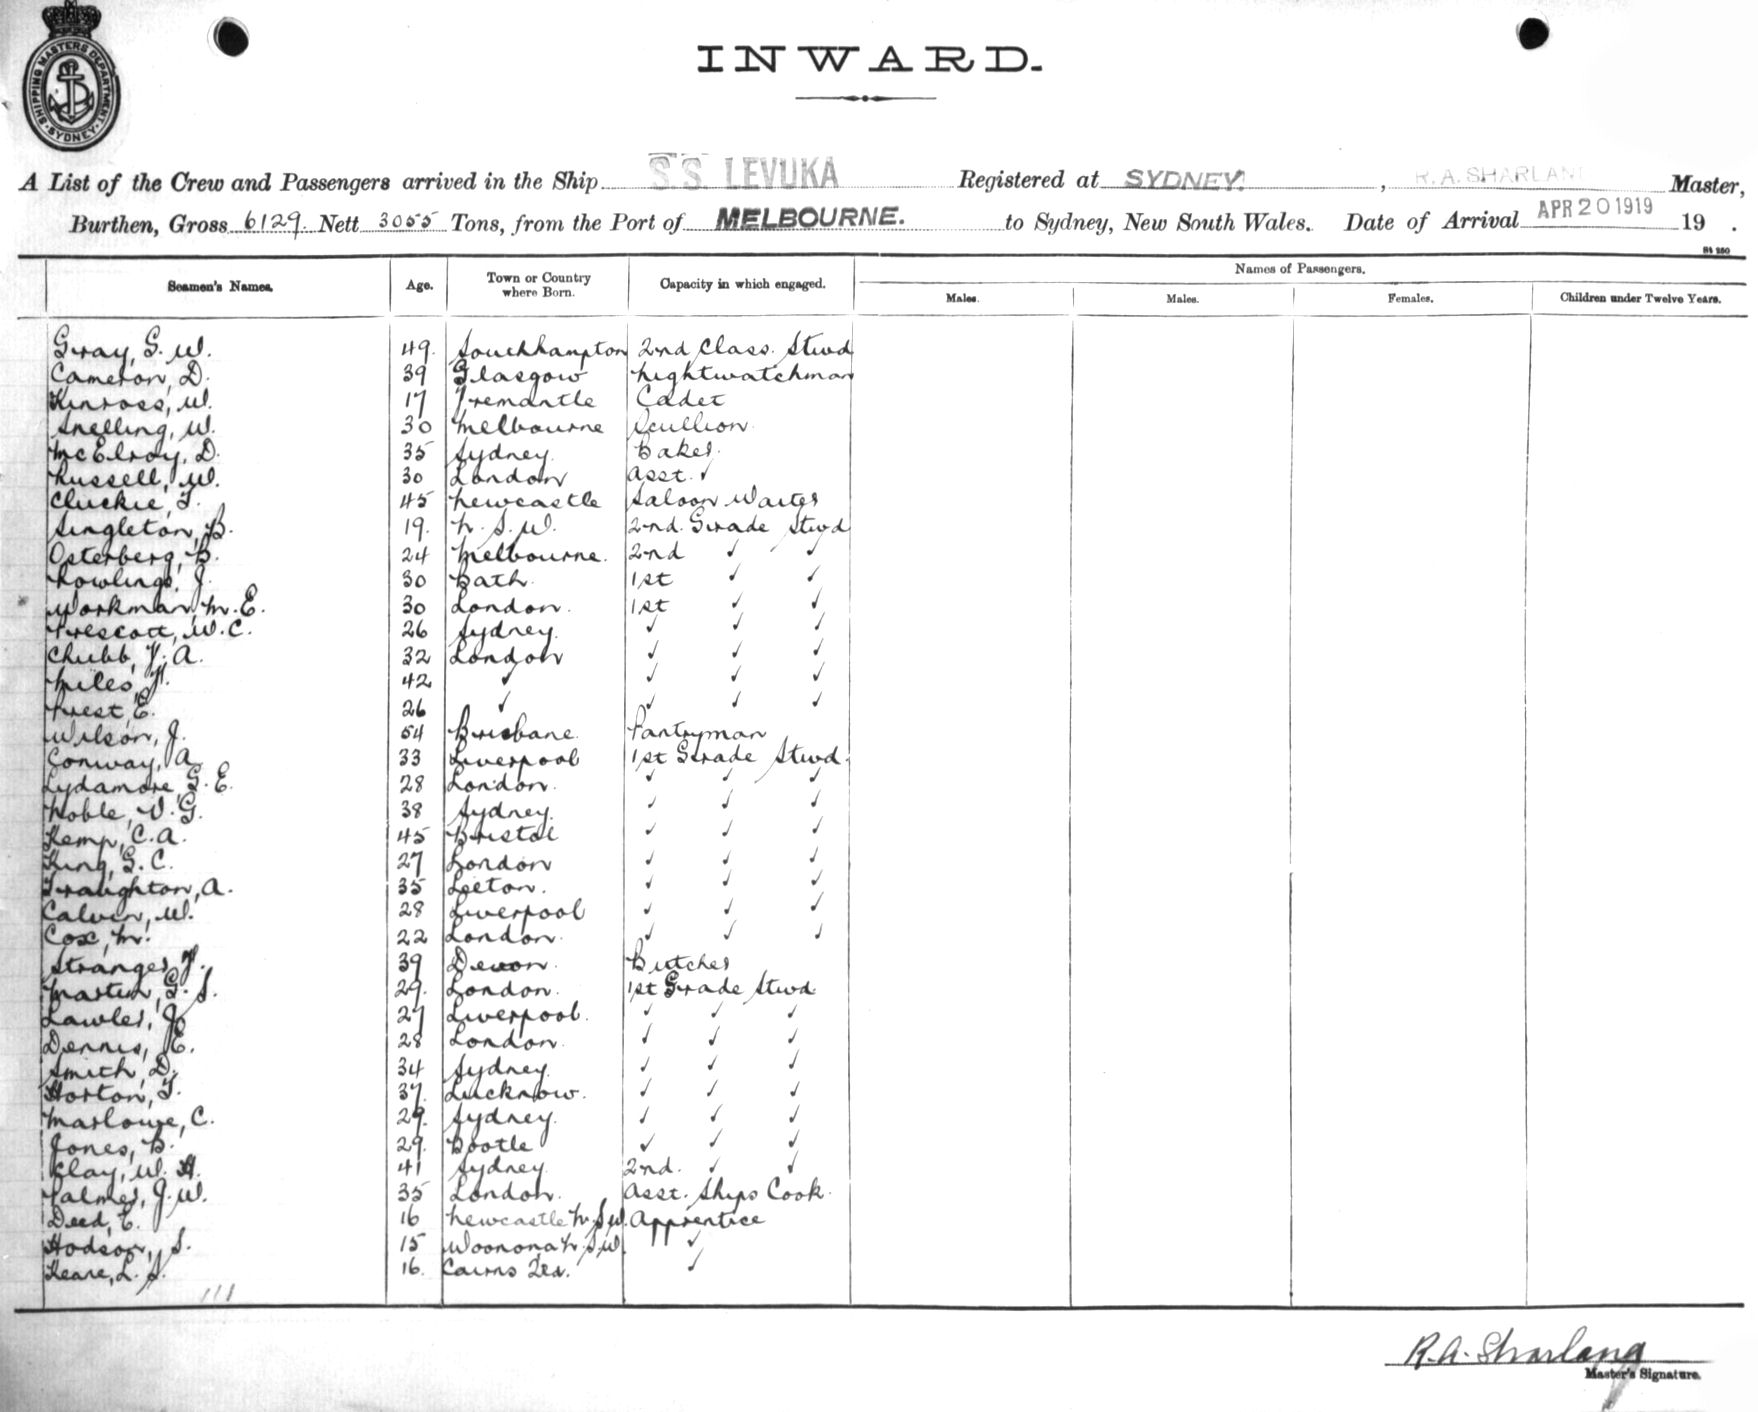 SHIPPING MASTERS DEPARTMENT · SYDNEY ·
INWARD.
A List of the Crew and Passengers arrived in the Ship S.S. LEVUKA Registered at SYDNEY. , R. A. SHARLAND Master,
Burthen, Gross 6129. Nett 3055 Tons, from the Port of MELBOURNE. to Sydney, New South Wales. Date of Arrival APR 20 1919 19 .
Seamen's Names. Age. Town or Country where Born. Capacity in which engaged. Names of Passengers.
Males. Males. Females. Children under Twelve Years.
Gray, G. W. 49. Southhampton 2nd Class. Stwd
Cameron, D. 39 Glasgow Nightwatchman
Kinross, W. 17 Fremantle Cadet
Snelling, W. 30 Melbourne Scullion
McElroy, D. 35 Sydney. Baker.
Russell, W. 30 London Asst. ✓
Cluckie, T. 45 Newcastle Saloon Waiter
Singleton, B. 19. N. S. W. 2nd. Grade Stwd
Osterberg, B. 24 Melbourne. 2nd ✓ ✓
Rowlings, J. 30 Bath. 1st ✓ ✓
Workman, M. E. 30 London. 1st ✓ ✓
Prescott, W. C. 26 Sydney. ✓ ✓ ✓
Chubb, F. A. 32 London ✓ ✓ ✓
Miles, F. 42 ✓ ✓ ✓ ✓
Prest, E. 26 ✓ ✓ ✓ ✓
Wilson, J. 54 Brisbane. Pantryman
Conway, A. 33 Liverpool 1st Grade Stwd.
Lydamore, G. E. 28 London. ✓ ✓ ✓
Noble, V. G. 38 Sydney. ✓ ✓ ✓
Kemp, C. A. 45 Bristol ✓ ✓ ✓
King, G. C. 27 London ✓ ✓ ✓
Traughton, A. 35 Leeton. ✓ ✓ ✓
Calvin, W. 28 Liverpool ✓ ✓ ✓
Cox, M. 22 London. ✓ ✓ ✓
Stranger, F. 39 Devon. Butcher
Martin, G. S. 29. London. 1st Grade Stwd
Lawler, J. 27 Liverpool. ✓ ✓ ✓
Dennis, E. 28 London. ✓ ✓ ✓
Smith, D. 34 Sydney. ✓ ✓ ✓
Horton, T. 37. Lucknow. ✓ ✓ ✓
Marlowe, C. 29. Sydney. ✓ ✓ ✓
Jones, B. 29. Bootle ✓ ✓ ✓
Clay, W. H. 41 Sydney. 2nd. ✓ ✓
Palmer, J. W. 35 London. Asst. Ships Cook.
Deed, E. 16 Newcastle N.S.W. Apprentice
Hodson, S. 15 Woonona N.S.W. ✓
Keane, L. S. 16. Cairns Qld. ✓
111
R. A. Sharland
Master's Signature.